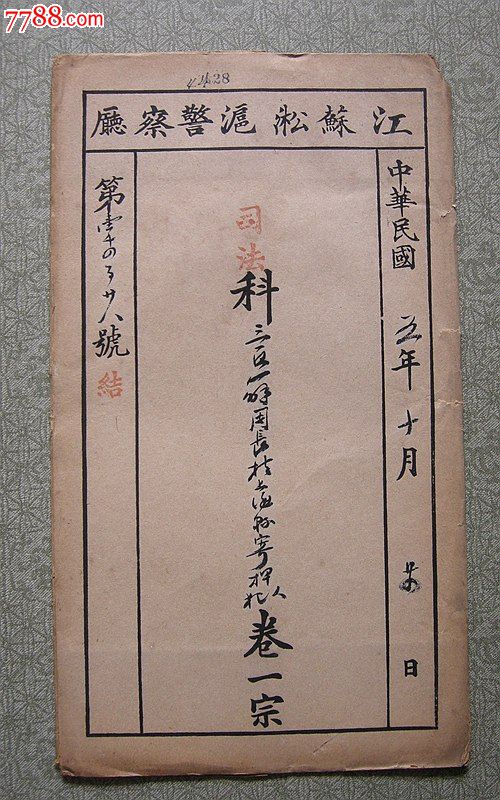 7788.com
28
江蘇淞滬警察廳
中華民國 五年 十月 日
司法科 三區一解周長 上海縣寄押人犯 卷一宗
第 千四百廿八號 結